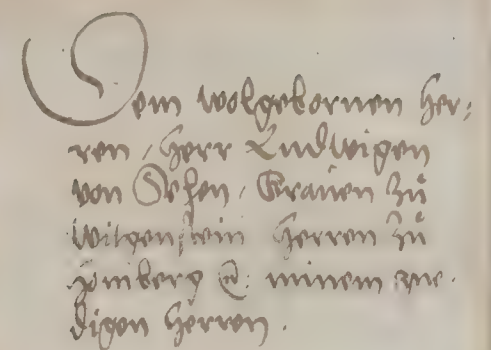 Dem wolgebornen Her-
ren, Herr Ludwigen
von Sehen, Grauen zů
Witgenstein Herren zů
Homberg ꝛc. minem gne-
digen Herren.